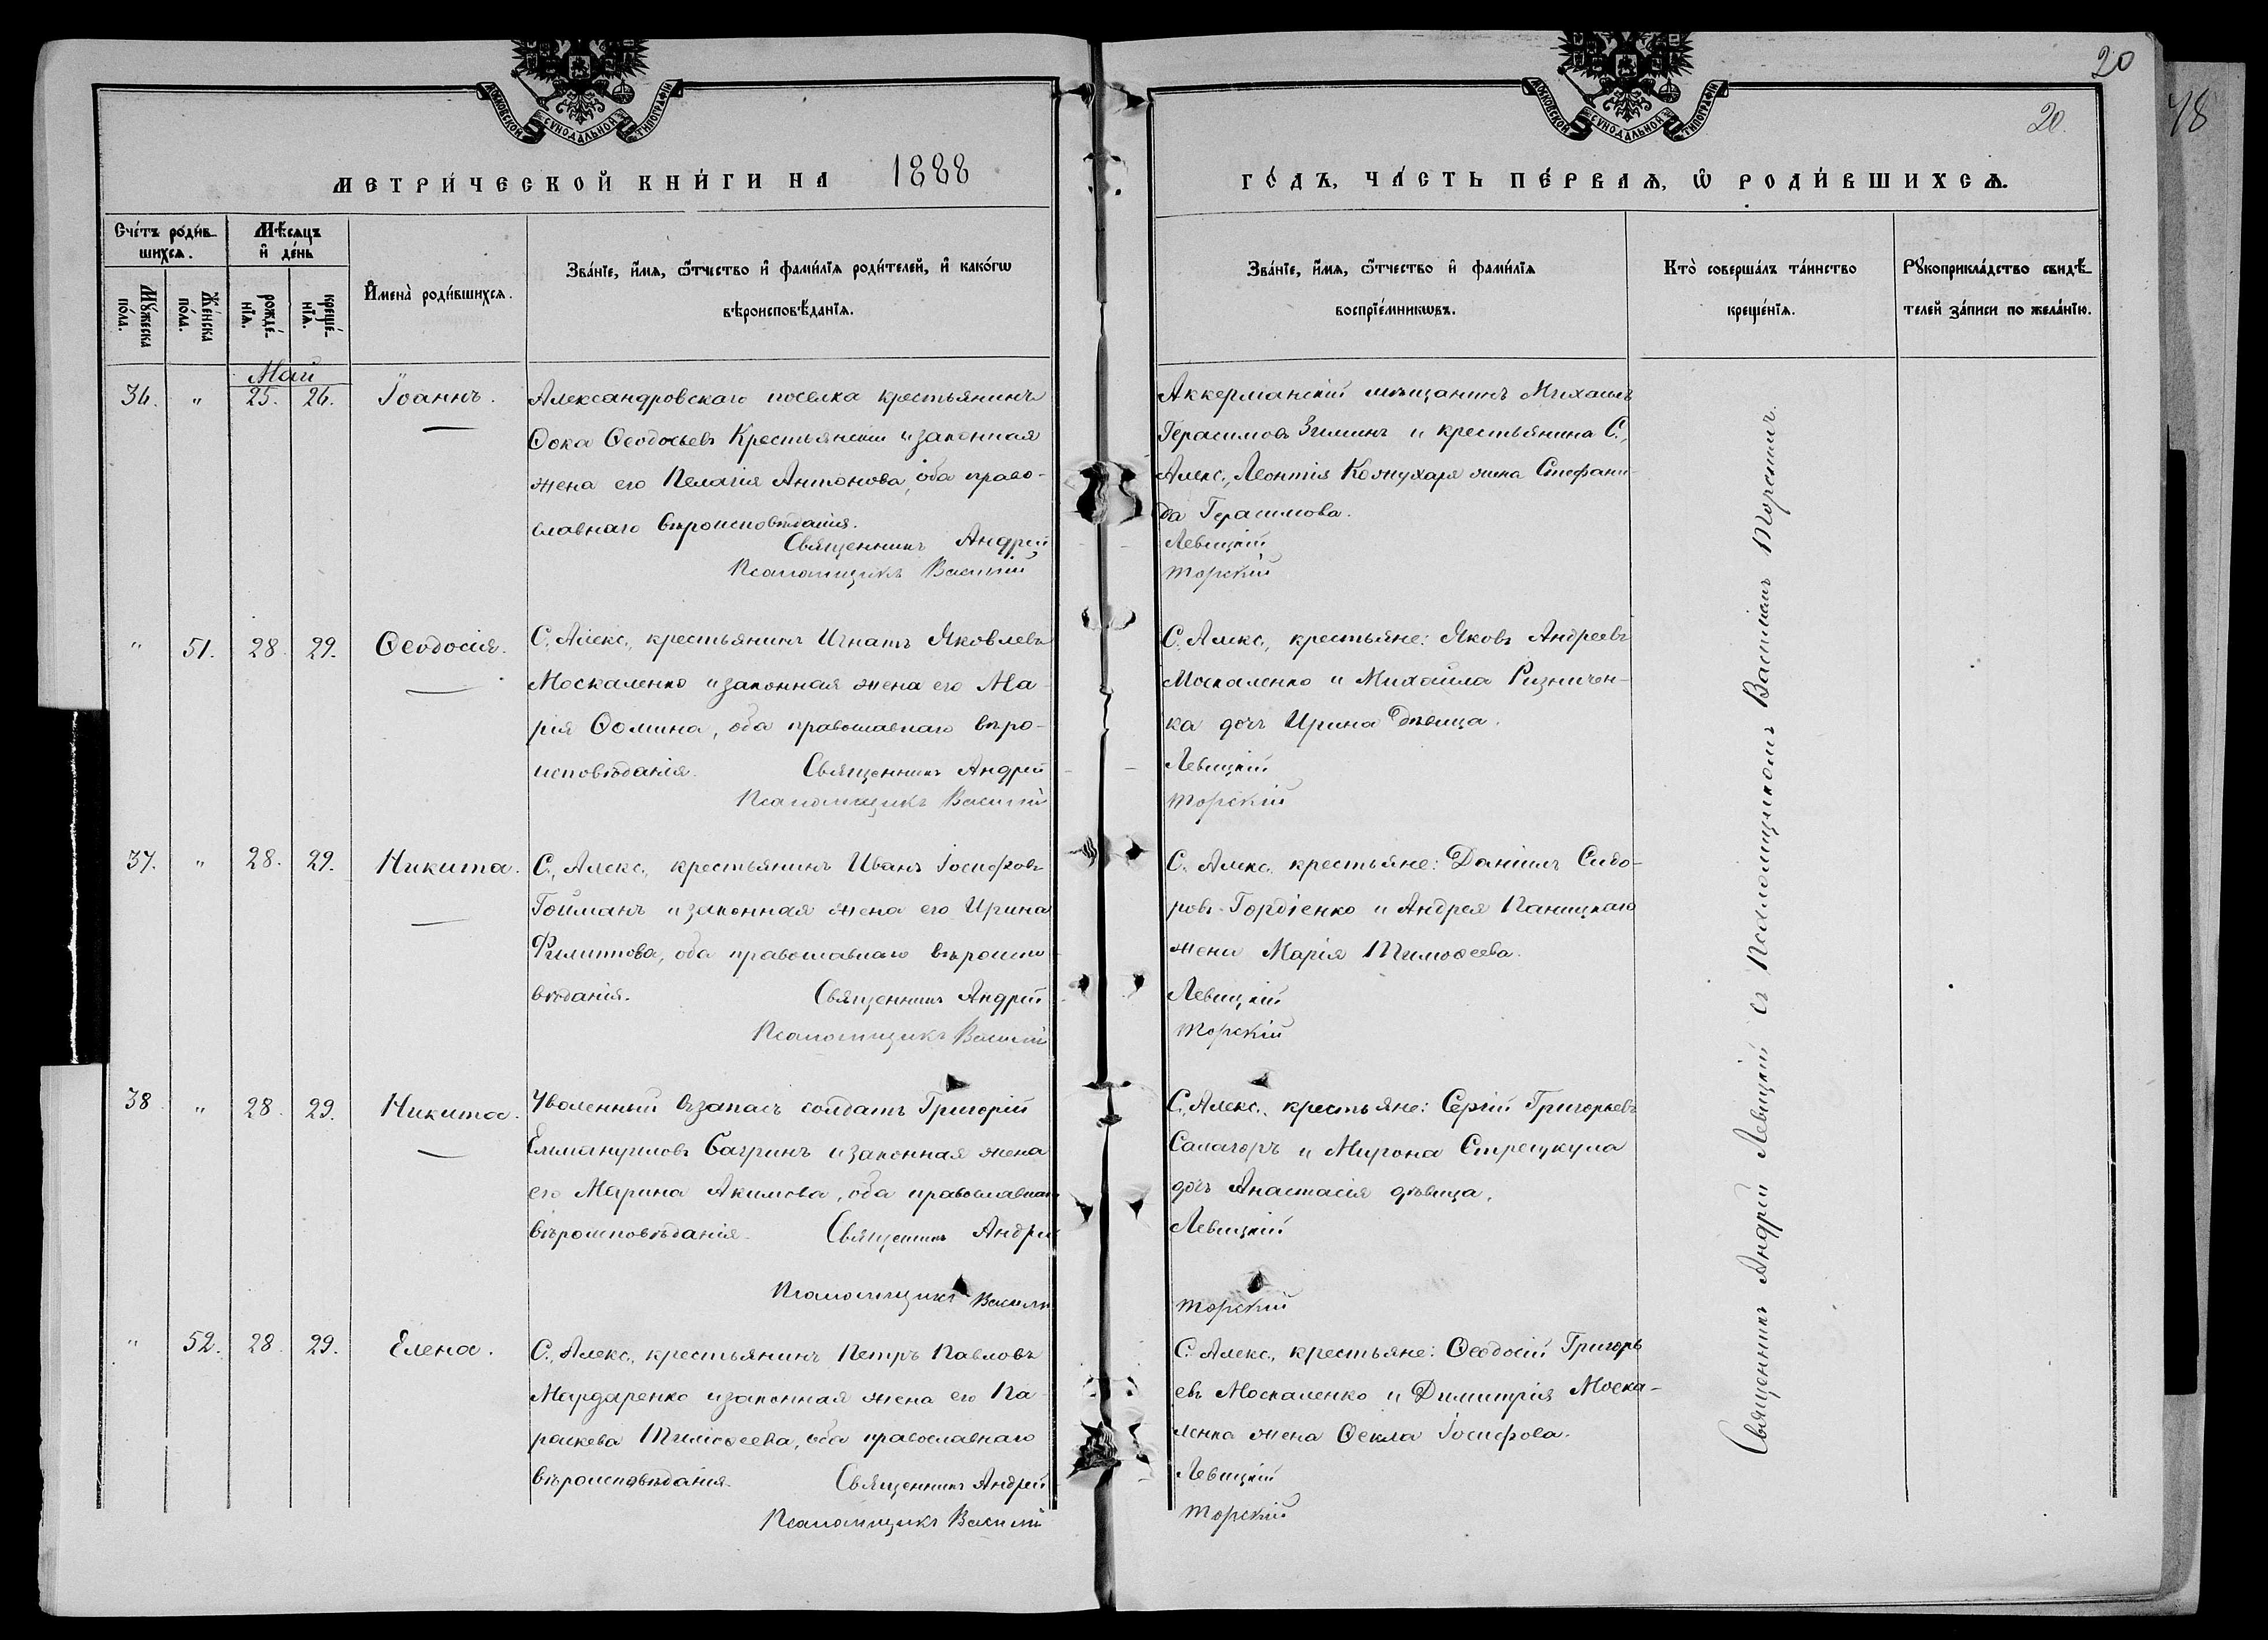 20
48
20.
МОСКОВСКОЙ СѴНОДАЛЬНОЙ ТИПОГРАФІИ
МОСКОВСКОЙ СѴНОДАЛЬНОЙ ТИПОГРАФІИ
МЕТРИ́ЧЕСКОЙ КНИ́ГИ НА 1888
ГО́ДЪ, ЧА́СТЬ ПЕ́РВАѦ, Ѡ РОДИ́ВШИХСѦ.
Сче́тъ роди́в-
шихсѧ.
Мѣ́сяцъ
и де́нь
Мꙋ́жеска
по́ла.
Же́нска
по́ла.
рожде́-
нїѧ.
креще́-
нїѧ.
Имена̀ роди́вшихсѧ.
Зва́нїе, и́мѧ, ѻ́тчество и фами́лїѧ роди́телей, и како́гѡ
вѣроисповѣ́данїѧ.
Зва́нїе, и́мѧ, ѻ́тчество и фами́лїѧ
воспрїе́мникѡвъ.
Кто̀ соверша́лъ та́инство
креще́нїѧ.
Рꙋкоприкла́дство свидѣ́-
телей за́писи по жела́нїю.
Май
36. " 25. 26. Іоаннъ.
Александровскаго поселка крестьянинъ
Ѳока Ѳеодосьевъ Крестьянскій и законная
жена его Пелагія Антонова, оба право-
славнаго вѣроисповѣданія.
Священникъ Андрей
Псаломщикъ Василій
Аккерманскій мѣщанинъ Михаилъ
Герасимовъ Зиминъ и крестьянина С.,
Алекс., Леонтія Кожухаря жена Стефани-
да Герасимова.
Левицкій
Торскій
" 51. 28. 29. Ѳеодосія.
С. Алекс., крестьянинъ Игнатъ Яковлевъ
Москаленко и законная жена его Ма-
рія Ѳомина, оба православнаго вѣро-
исповѣданія. Священникъ Андрей
Псаломщикъ Василій
С. Алекс., крестьяне: Яковъ Андреевъ
Москаленко и Михаила Ризничен-
ка дочь Ирина дѣвица.
Левицкій
Торскій
37. " 28. 29. Никита.
С., Алекс., крестьянинъ Иванъ Іосифовъ
Гойманъ и законная жена его Ирина
Филиппова, оба православнаго вѣроиспо
вѣданія. Священникъ Андрей
Псаломщикъ Василій
С. Алекс. крестьяне: Даніилъ Сидо-
ровъ Гордіенко и Андрея Паницкаго
жена Марія Тимоѳеева.
Левицкій
Торскій
38 " 28. 29. Никита.
Уволенный въ запасъ солдатъ Григорій
Еммануиловъ Багринъ и законная жена
его Марина Акимова, оба православнаго
вѣроисповѣданія. Священникъ Андрей
Псаломщикъ Василій
С., Алекс., крестьяне: Сергій Григорьевъ
Салагоръ и Мирона Стрецкула
дочь Анастасія дѣвица.
Левицкій
Торскій
" 52. 28. 29. Елена.
С., Алекс., крестьянинъ Петръ Павловъ
Мардаренко и законная жена его Па-
раскева Тимоѳеева, оба православнаго
вѣроисповѣданія. Священникъ Андрей
Псаломщикъ Василій
С. Алекс., крестьяне: Ѳеодосій Григорь
евъ Москаленко и Димитрія Моска-
ленка жена Ѳекла Іосифова.
Левицкій
Торскій
Священникъ Андрей Левицкій съ Псаломщикомъ Василіемъ Торскимъ.